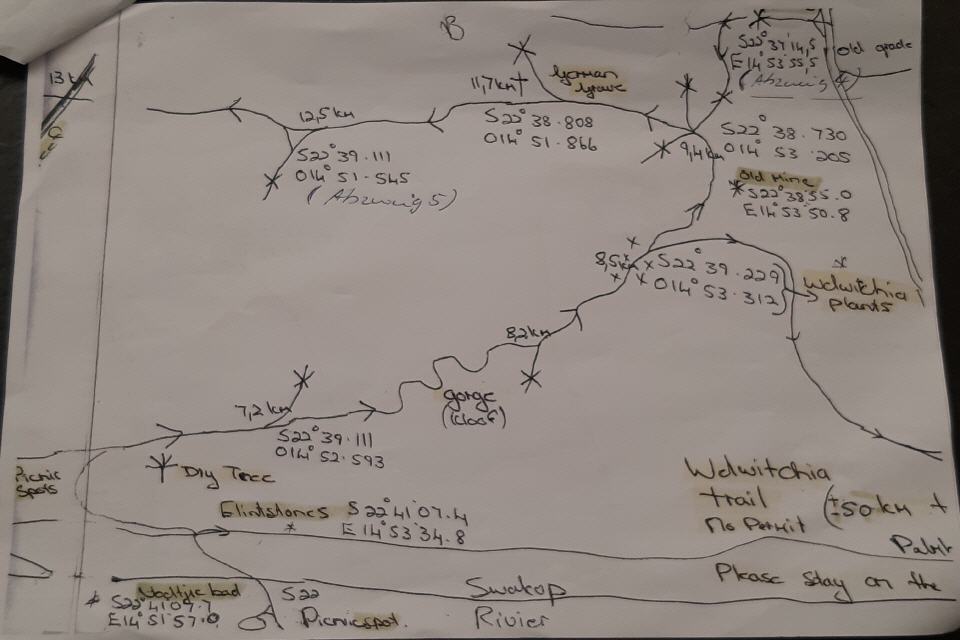 B
13 k
S22° 37'14,5
E 14° 53'55,5
(Abzweig
Old grade
11,7km
German
Grave
12,5 km
S22° 38.808
014° 51.866
S22° 38.730
014° 53.205
9,4km
S22° 39.111
014° 51.545
(Abzweig 5)
Old Mine
S22°38'55.0
E14°53'50.8
8,5km
S22° 39.229
014° 53.312
Welwitchia
plants
8,2km
gorge
(kloof)
7,2 km
S22° 39.111
014° 52.593
Picnic
Spots
Dry Tree
Welwitchia
trail
No Permit
(±50 km +
Flintstones S22°41'07.4
E 14°53'34.8
Please stay on the
S22°41'09.7
E14°51'57.0
S22
Picnicspot.
Swakop
Rivier